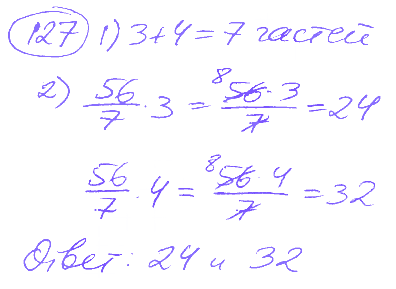 127 1) 3+4=7 частей
2) 56/7 · 3 = 8 56·3/7 = 24
56/7 · 4 = 8 56·4/7 = 32
Ответ: 24 и 32